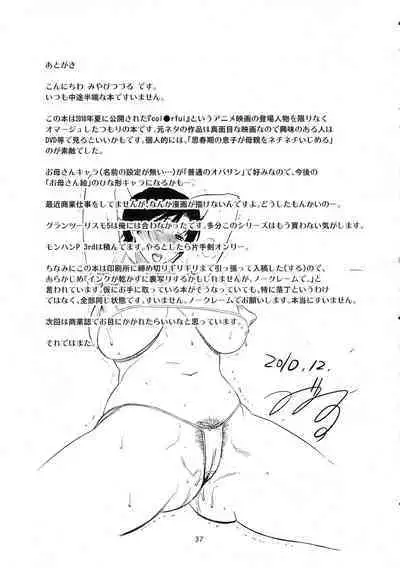 あとがき
こんにちわ みやびつづる です。
いつも中途半端な本ですいません。
この本は2010年夏に公開された『col●rful』というアニメ映画の登場人物を限りなく
オマージュしたつもりの本です。元ネタの作品は真面目な映画なので興味のある人は
DVD等で見るといいかもです。個人的には、「思春期の息子が母親をネチネチいじめる」
のが素敵でした。
お母さんキャラ(名前の設定が無い…)が「普通のオバサン」で好みなので、今後の
「お母さん絵」のひな形キャラになるかも…。
最近商業仕事をしてませんが、なんか漫画が描けないんですよ。どうしたもんかいのー。
グランツーリスモ5は俺には合わなかったです。多分このシリーズはもう買わない気がします。
モンハンP 3rdは積んでます。やるとしたら片手剣オンリー。
ちなみにこの本は印刷所に締め切りギリギリまで引っ張って入稿した(する)ので、
あらかじめ「インクが乾かずに裏写りするかもしれませんが、ノークレームで。」と
言われています。仮にお手に取っている本がそうなっていても、特に落丁とかいうわけ
ではなく、全部同じ状態です。すいません。ノークレームでお願いします。本当にすいません。
次回は商業誌でお目にかかれたらいいなと思っています。
それではまた。
2010.12.
37